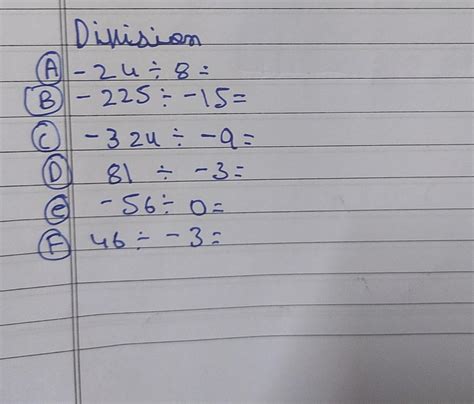 Division
A -24÷8=
B -225÷-15=
C -324÷-9=
D 81÷-3=
e -56÷0=
F 46÷-3=